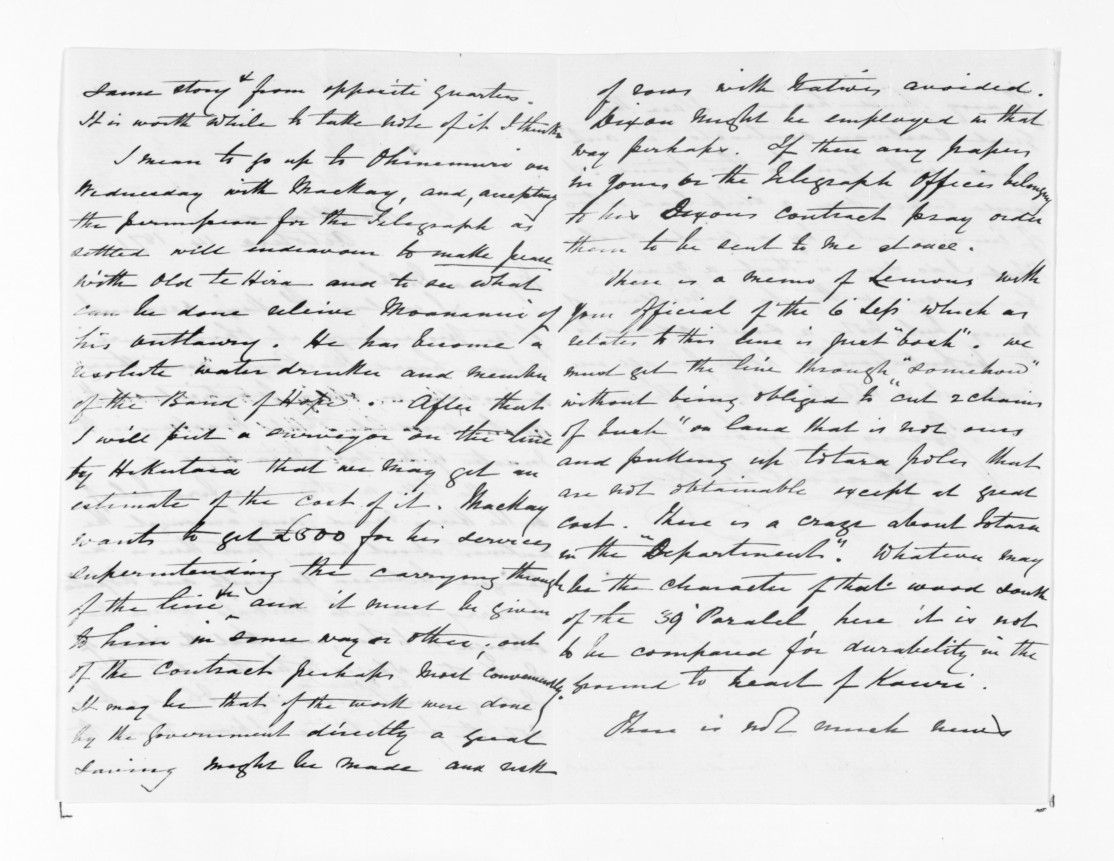 same story from opposite quarters.
It is worth while to take note of it I think
I mean to go up to Ohinemuri on
Wednesday with Mackay, and, accepting
the permission for the Telegraph as
settled will endeavour to make peace
with old te Hira and to see what
can be done relieve Moananui of
his outlawry. He has become a
resolute water drinker and member
of the Band of Hope. After that
I will put a surveyor on the line
by Hikutaia that we may get an
estimate of the cost of it. Mackay
wants to get £500 for his services
superintending the carrying through
of the line and it must be given
to him in some way or other, out
of the contract perhaps most conveniently.
It may be that if the work were done
by the Government directly a great
saving might be made and risk
of rows with Natives avoided.
Dixon might be employed in that
way perhaps. If there any papers
in yours or the Telegraph Offices belonging
to his Dixons contract pray order
them to be sent to me at once.
There is a memo of Lemons with
your official of the 6 which as
relates to this line is just "bosh". We
must get the line through "somehow"
without being obliged to "cut 2 chains
of bush" on land that is not ours
and putting up totara poles that
are not obtainable except at great
cost. There is a craze about Totara
in the "Department". Whatever may
be the character of that wood south
of the 39 Paralel here it is not
to be compared for durability in the
ground to heart of Kauri.
There is not much news